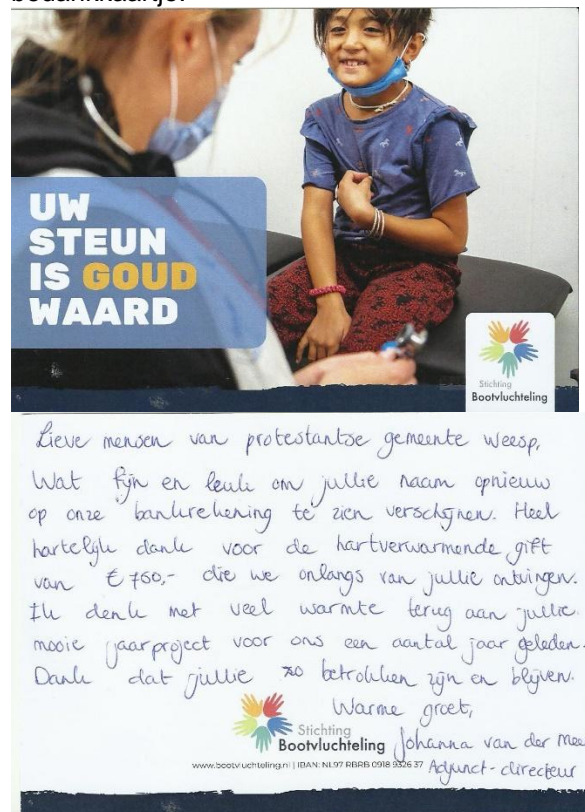 bedankkaartje:
UW
STEUN
IS GOUD
WAARD
Stichting
Bootvluchteling
Lieve mensen van protestantse gemeente Weesp,
Wat fijn en leuk om jullie naam opnieuw
op onze bankrekening te zien verschijnen. Heel
hartelijk dank voor de hartverwarmende gift
van € 760,- die we onlangs van jullie ontvingen.
Ik denk met veel warmte terug aan jullie
mooie jaarproject voor ons een aantal jaar geleden.
Dank dat jullie zo betrokken zijn en blijven.
Warme groet,
Stichting
Bootvluchteling
Johanna van der Mee
www.bootvluchteling.nl | IBAN: NL97 RBRB 0918 9326 37
Adjunct-directeur